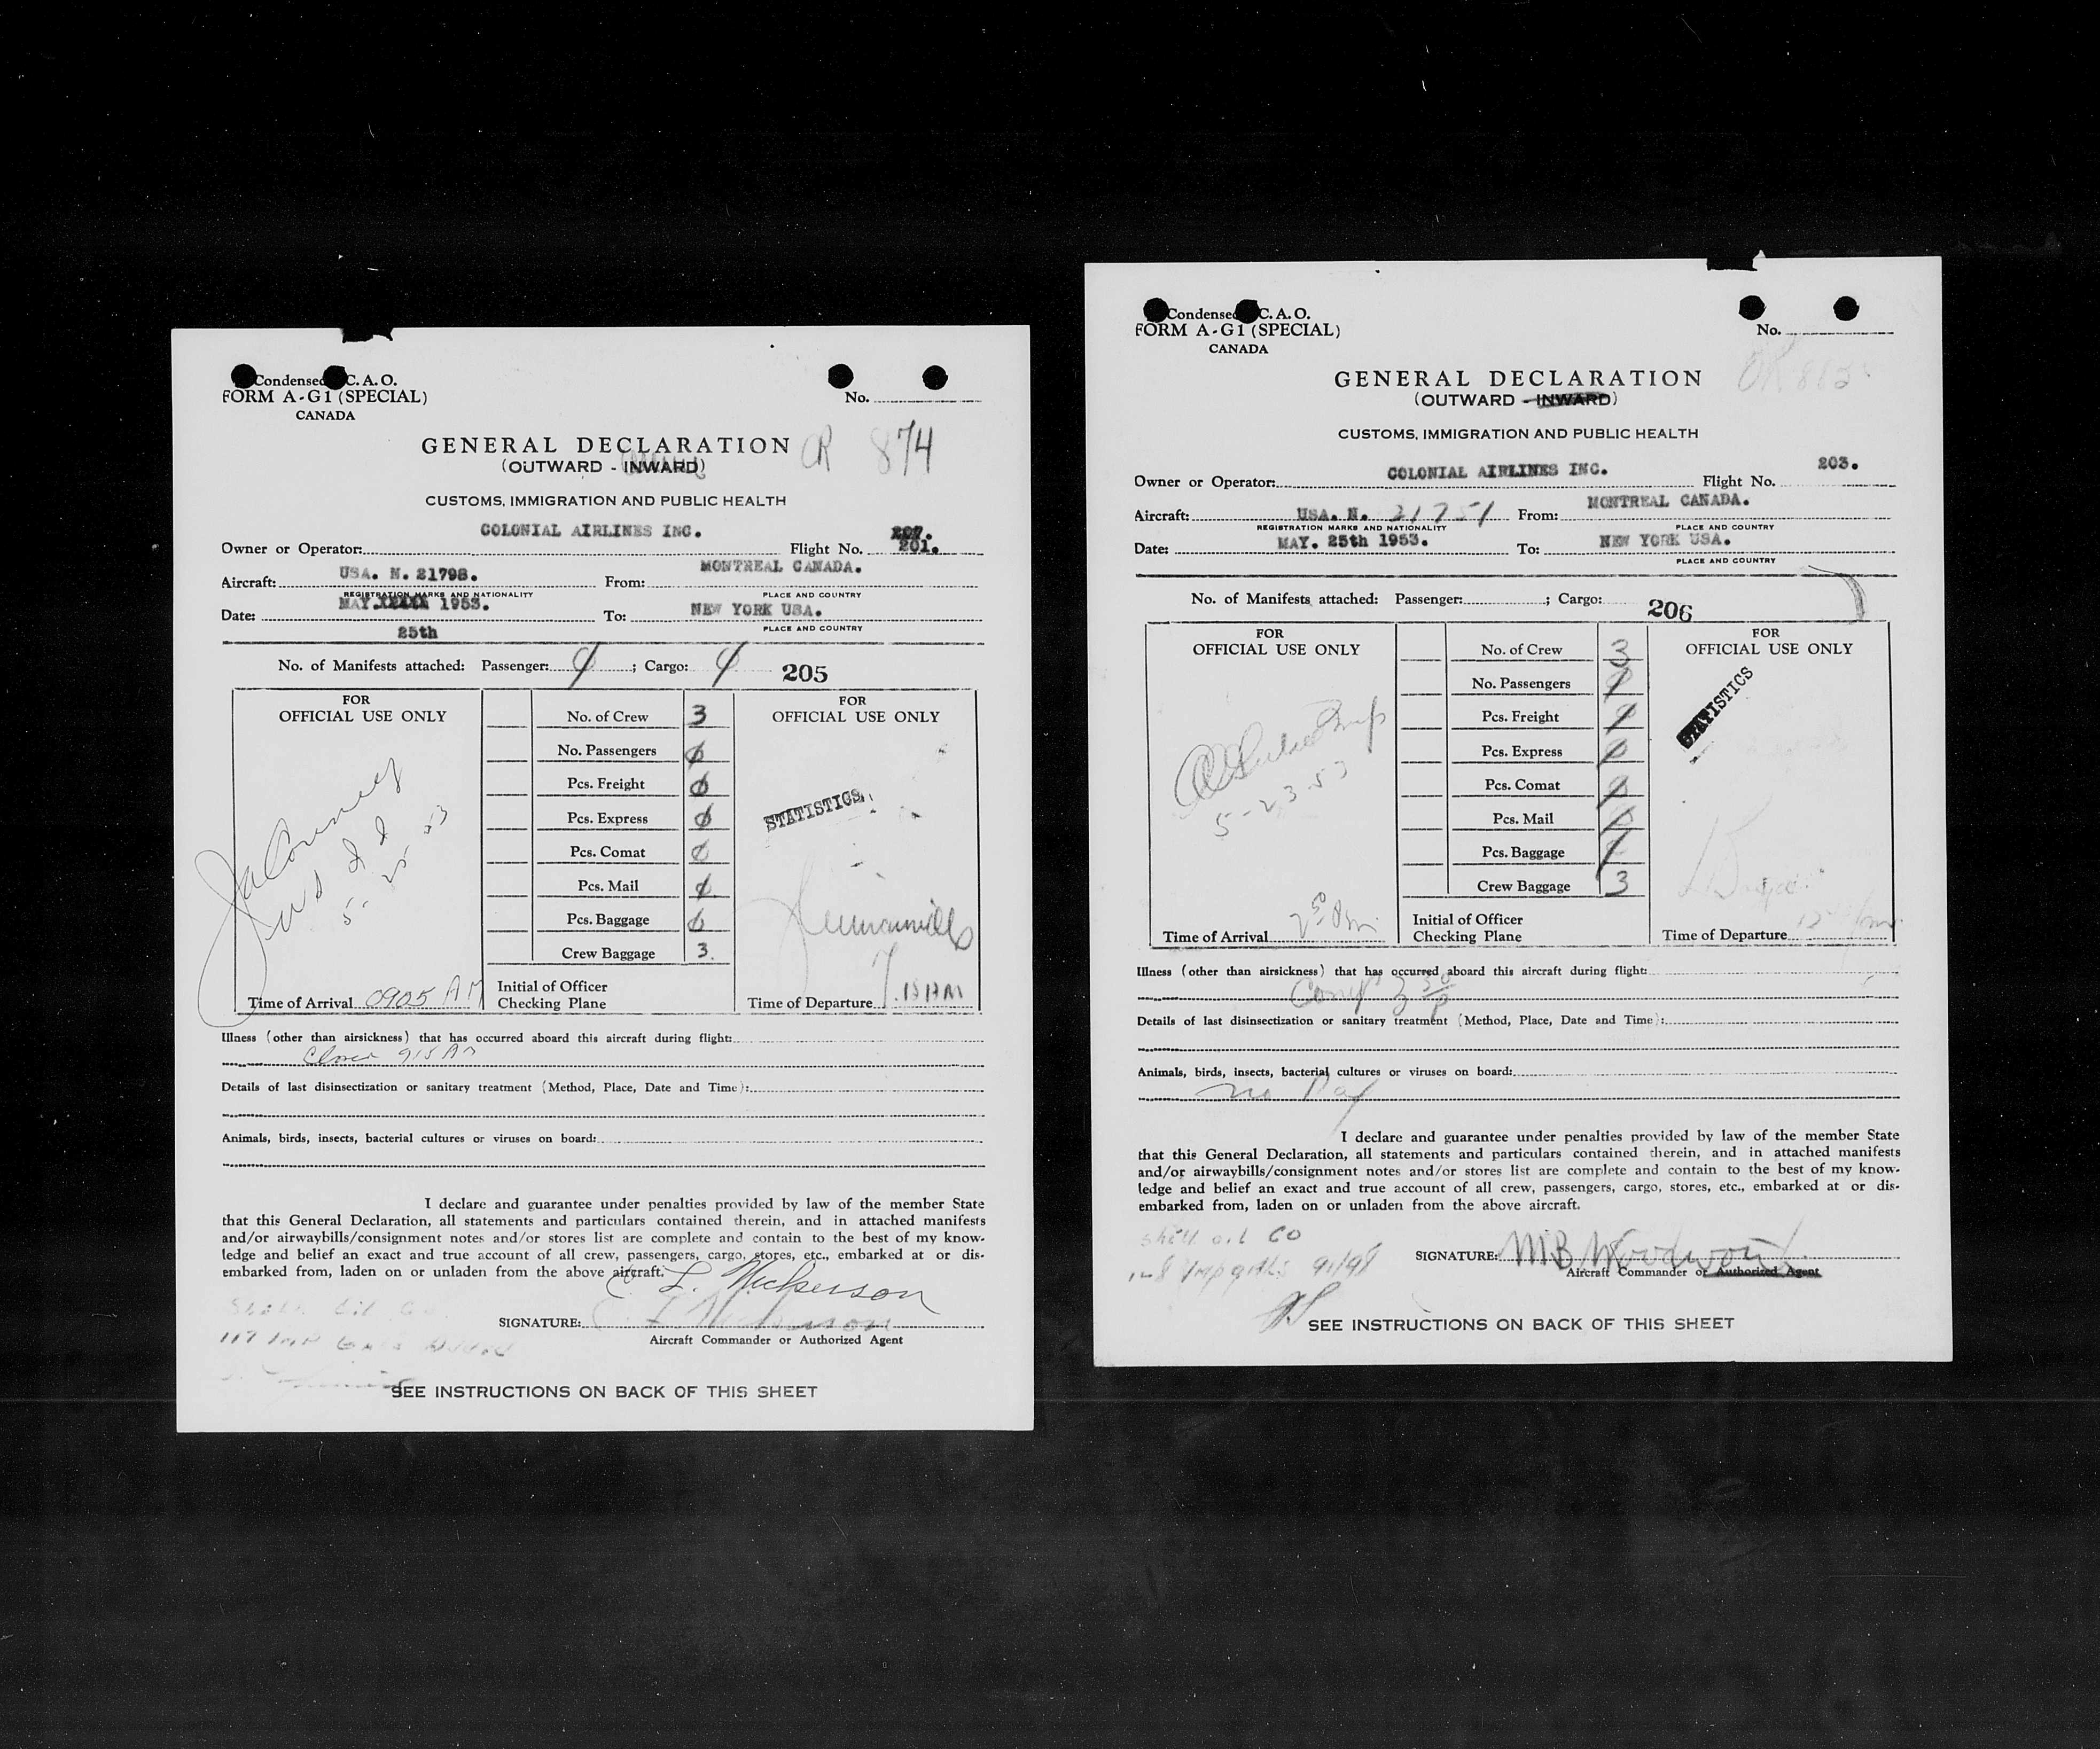 Condensed C. A. O.
FORM A-G1 (SPECIAL)
CANADA
No.
GENERAL DECLARATION
CR 874
(OUTWARD - INWARD)
CUSTOMS, IMMIGRATION AND PUBLIC HEALTH
COLONIAL AIRLINES INC.
Owner or Operator: Flight No. 201.
Aircraft: USA. N. 21798. From: MONTREAL CANADA.
REGISTRATION MARKS AND NATIONALITY PLACE AND COUNTRY
Date: MAY. 1953. To: NEW YORK USA.
25th PLACE AND COUNTRY
No. of Manifests attached: Passenger: ; Cargo: 205
FOR
OFFICIAL USE ONLY
5-25-53
Time of Arrival 0905 AM
No. of Crew 3
No. Passengers 0
Pcs. Freight 0
Pcs. Express 0
Pcs. Comat 0
Pcs. Mail 0
Pcs. Baggage 0
Crew Baggage 3.
Initial of Officer
Checking Plane
FOR
OFFICIAL USE ONLY
STATISTICS
Time of Departure
Illness (other than airsickness) that has occurred aboard this aircraft during flight:
915 AM
Details of last disinsectization or sanitary treatment (Method, Place, Date and Time):
Animals, birds, insects, bacterial cultures or viruses on board:
I declare and guarantee under penalties provided by law of the member State
that this General Declaration, all statements and particulars contained therein, and in attached manifests
and/or airwaybills/consignment notes and/or stores list are complete and contain to the best of my know-
ledge and belief an exact and true account of all crew, passengers, cargo, stores, etc., embarked at or dis-
embarked from, laden on or unladen from the above aircraft.
C. L. Nickerson
SIGNATURE:
Aircraft Commander or Authorized Agent
SEE INSTRUCTIONS ON BACK OF THIS SHEET
Condensed C. A. O.
FORM A-G1 (SPECIAL)
CANADA
No.
GENERAL DECLARATION
(OUTWARD - INWARD)
CUSTOMS, IMMIGRATION AND PUBLIC HEALTH
Owner or Operator: COLONIAL AIRLINES INC. Flight No. 203.
Aircraft: USA. N. 21751 From: MONTREAL CANADA.
REGISTRATION MARKS AND NATIONALITY PLACE AND COUNTRY
Date: MAY. 25th 1953. To: NEW YORK USA.
PLACE AND COUNTRY
No. of Manifests attached: Passenger: ; Cargo: 206
FOR
OFFICIAL USE ONLY
5-23-53
Time of Arrival 2 50 pm
No. of Crew 3
No. Passengers
Pcs. Freight
Pcs. Express
Pcs. Comat
Pcs. Mail
Pcs. Baggage
Crew Baggage 3
Initial of Officer
Checking Plane
FOR
OFFICIAL USE ONLY
STATISTICS
Time of Departure
Illness (other than airsickness) that has occurred aboard this aircraft during flight:
Details of last disinsectization or sanitary treatment (Method, Place, Date and Time):
Animals, birds, insects, bacterial cultures or viruses on board:
no Pax
I declare and guarantee under penalties provided by law of the member State
that this General Declaration, all statements and particulars contained therein, and in attached manifests
and/or airwaybills/consignment notes and/or stores list are complete and contain to the best of my know-
ledge and belief an exact and true account of all crew, passengers, cargo, stores, etc., embarked at or dis-
embarked from, laden on or unladen from the above aircraft.
Shell oil CO
SIGNATURE: MB Woodword
Aircraft Commander or Authorized Agent
SEE INSTRUCTIONS ON BACK OF THIS SHEET